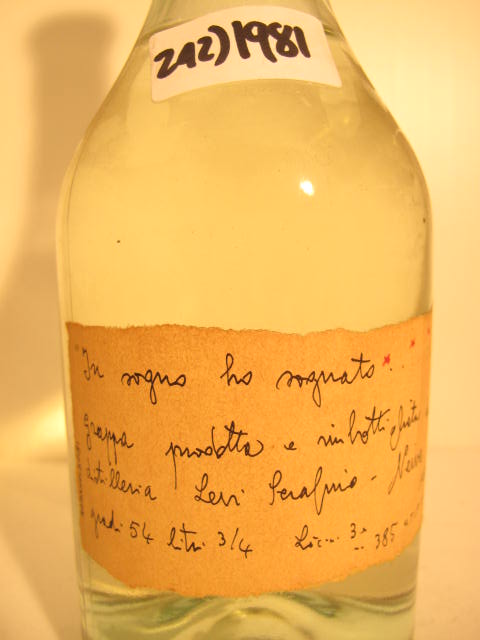 242) 1981
"In sogno ho sognato...
grappa prodotta e imbottigliata
distilleria Levi Serafino - Neive
gradi 54 litri 3/4 385